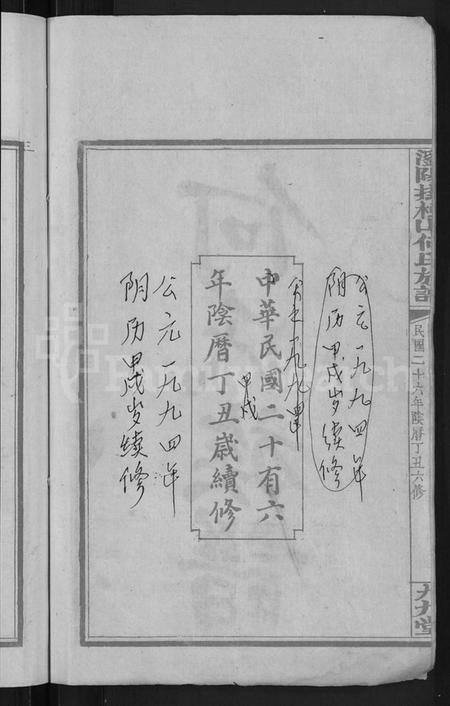 山何氏族譜
民國二十六年陰曆丁丑六修
公元一九九四年
阴历甲戌岁续修
公元一九九四年
中華民國二十有六
甲戌
年陰曆丁丑歲續修
公元一九九四年
阴历甲戌岁续修